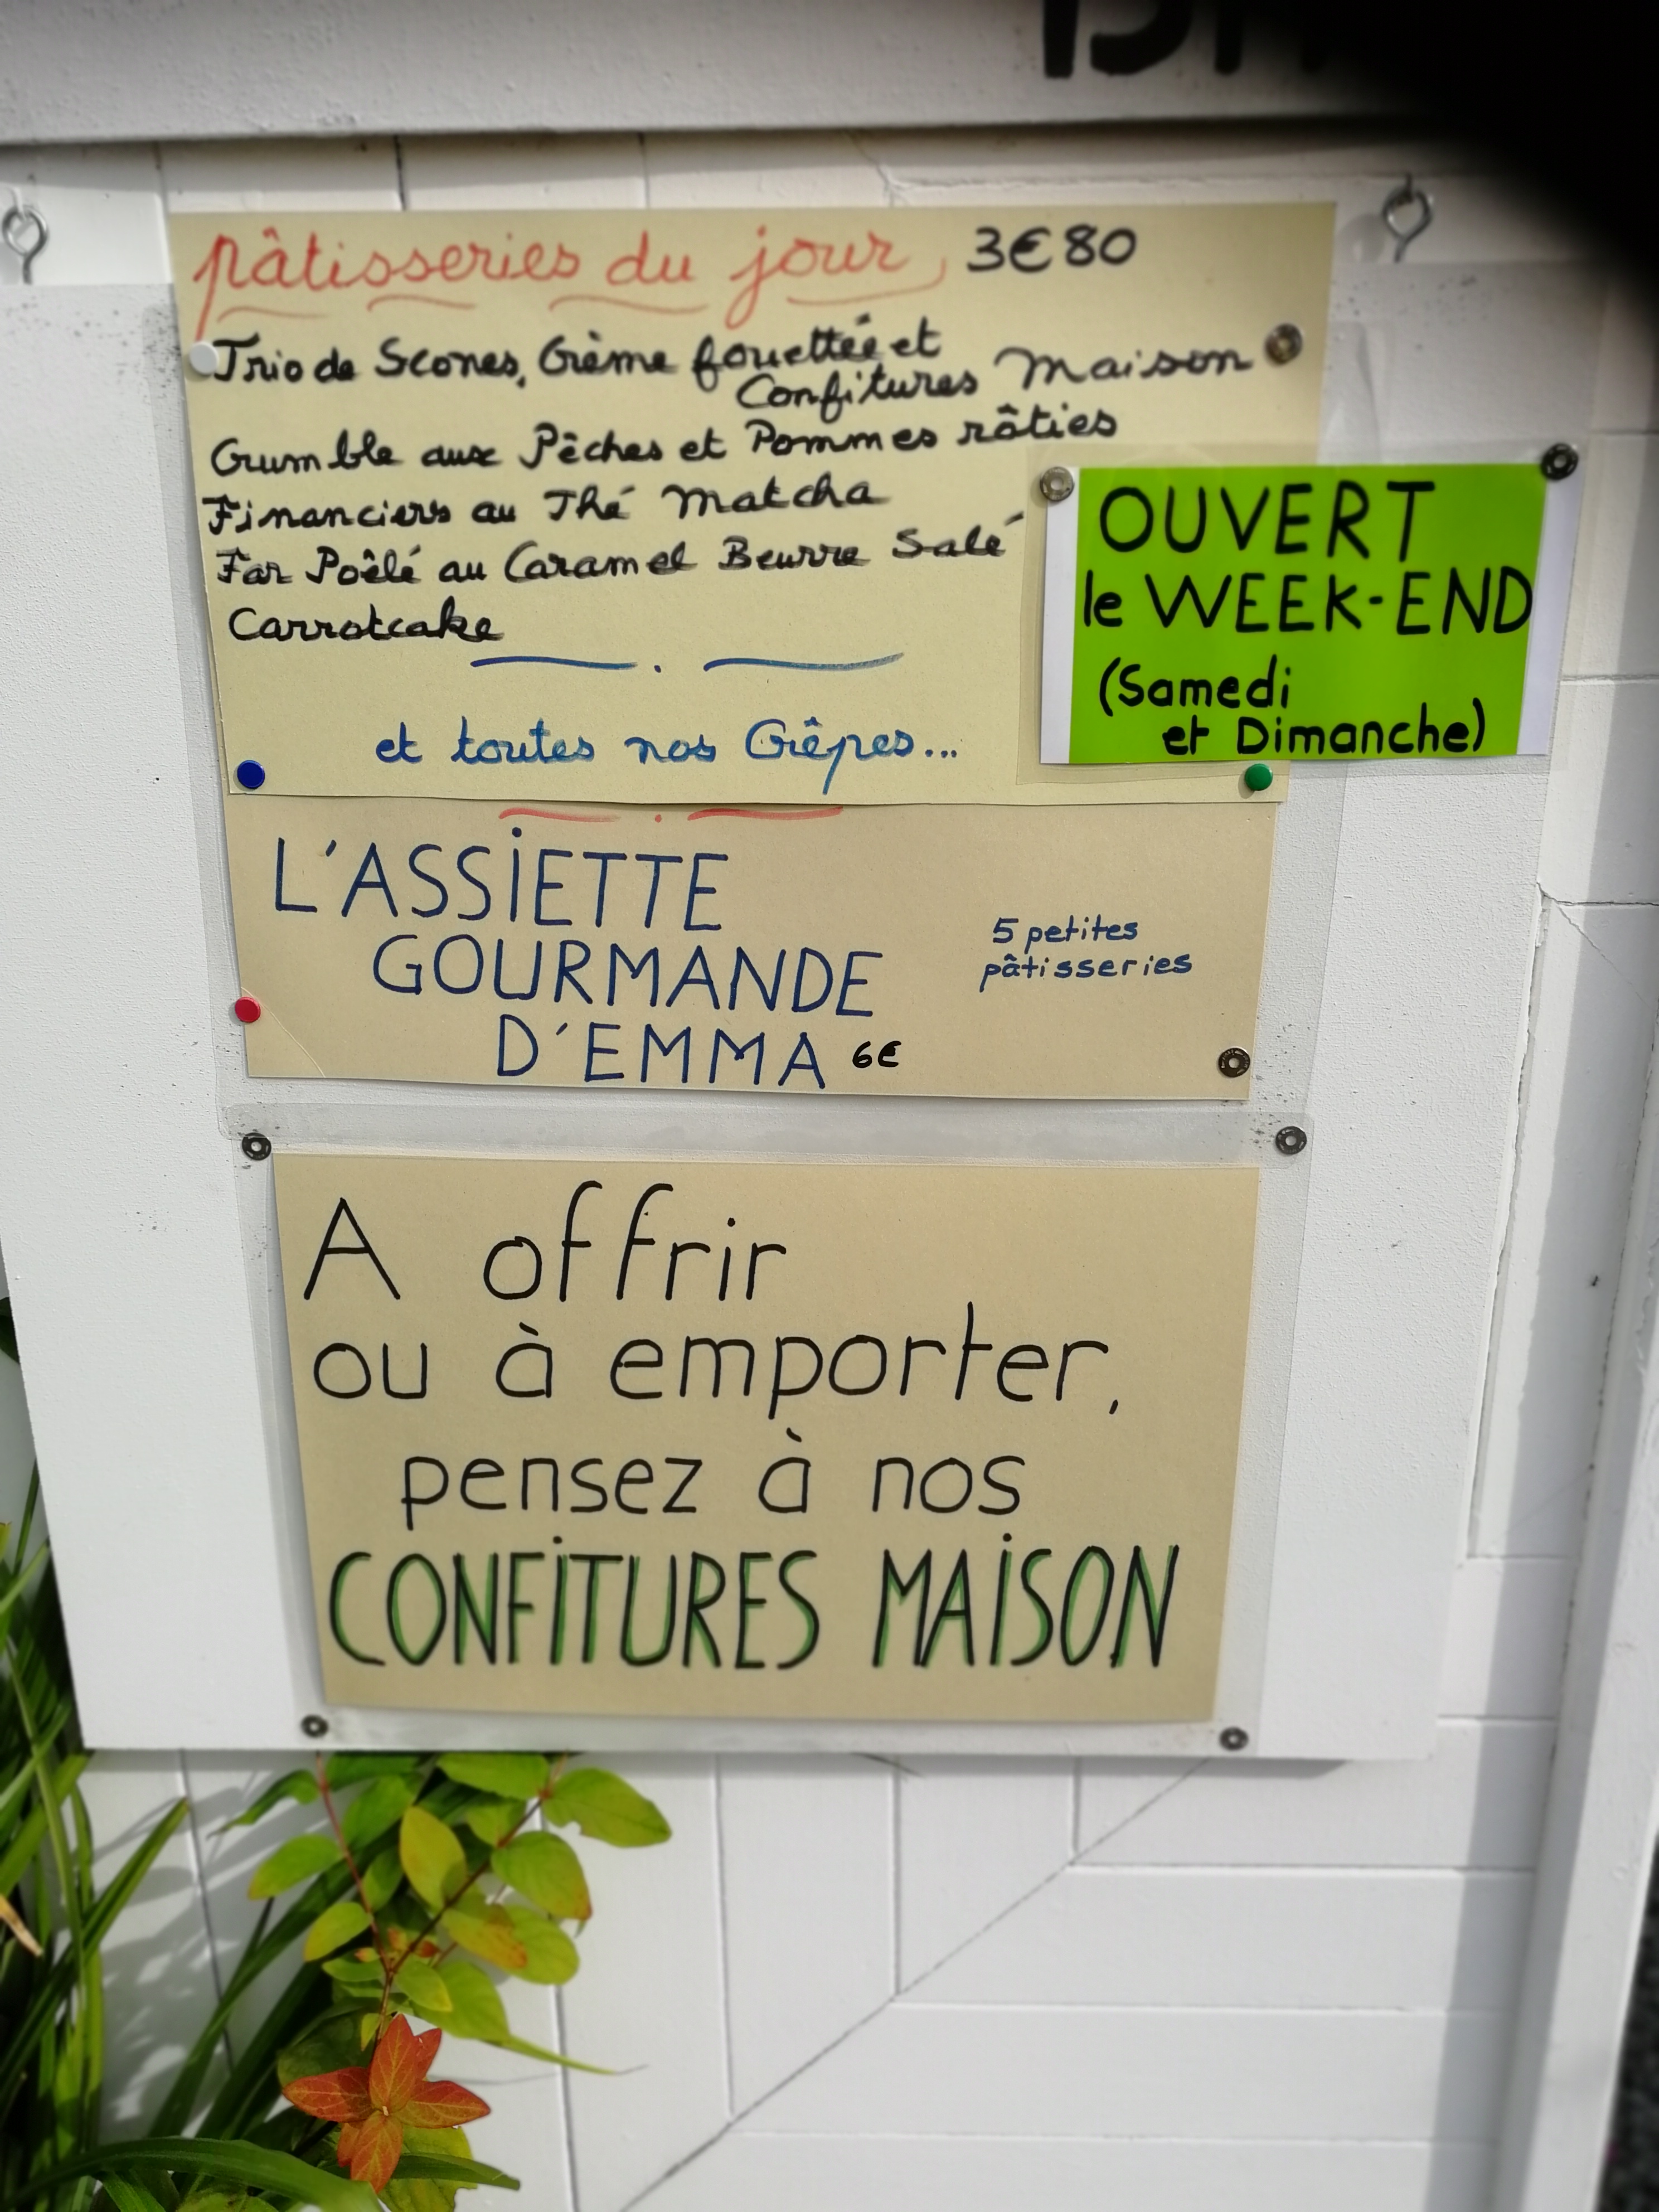 pâtisseries du jour, 3€80
Trio de Scones, Crème fouettée et
Confitures Maison
Crumble aux Pêches et Pommes rôties
Financiers au Thé Matcha
Far Poêlé au Caramel Beurre Salé
Carrotcake
et toutes nos Crêpes...
OUVERT
le WEEK-END
(Samedi
et Dimanche)
L'ASSIETTE
GOURMANDE
D'EMMA 6€
5 petites
pâtisseries
A offrir
ou à emporter,
pensez à nos
CONFITURES MAISON